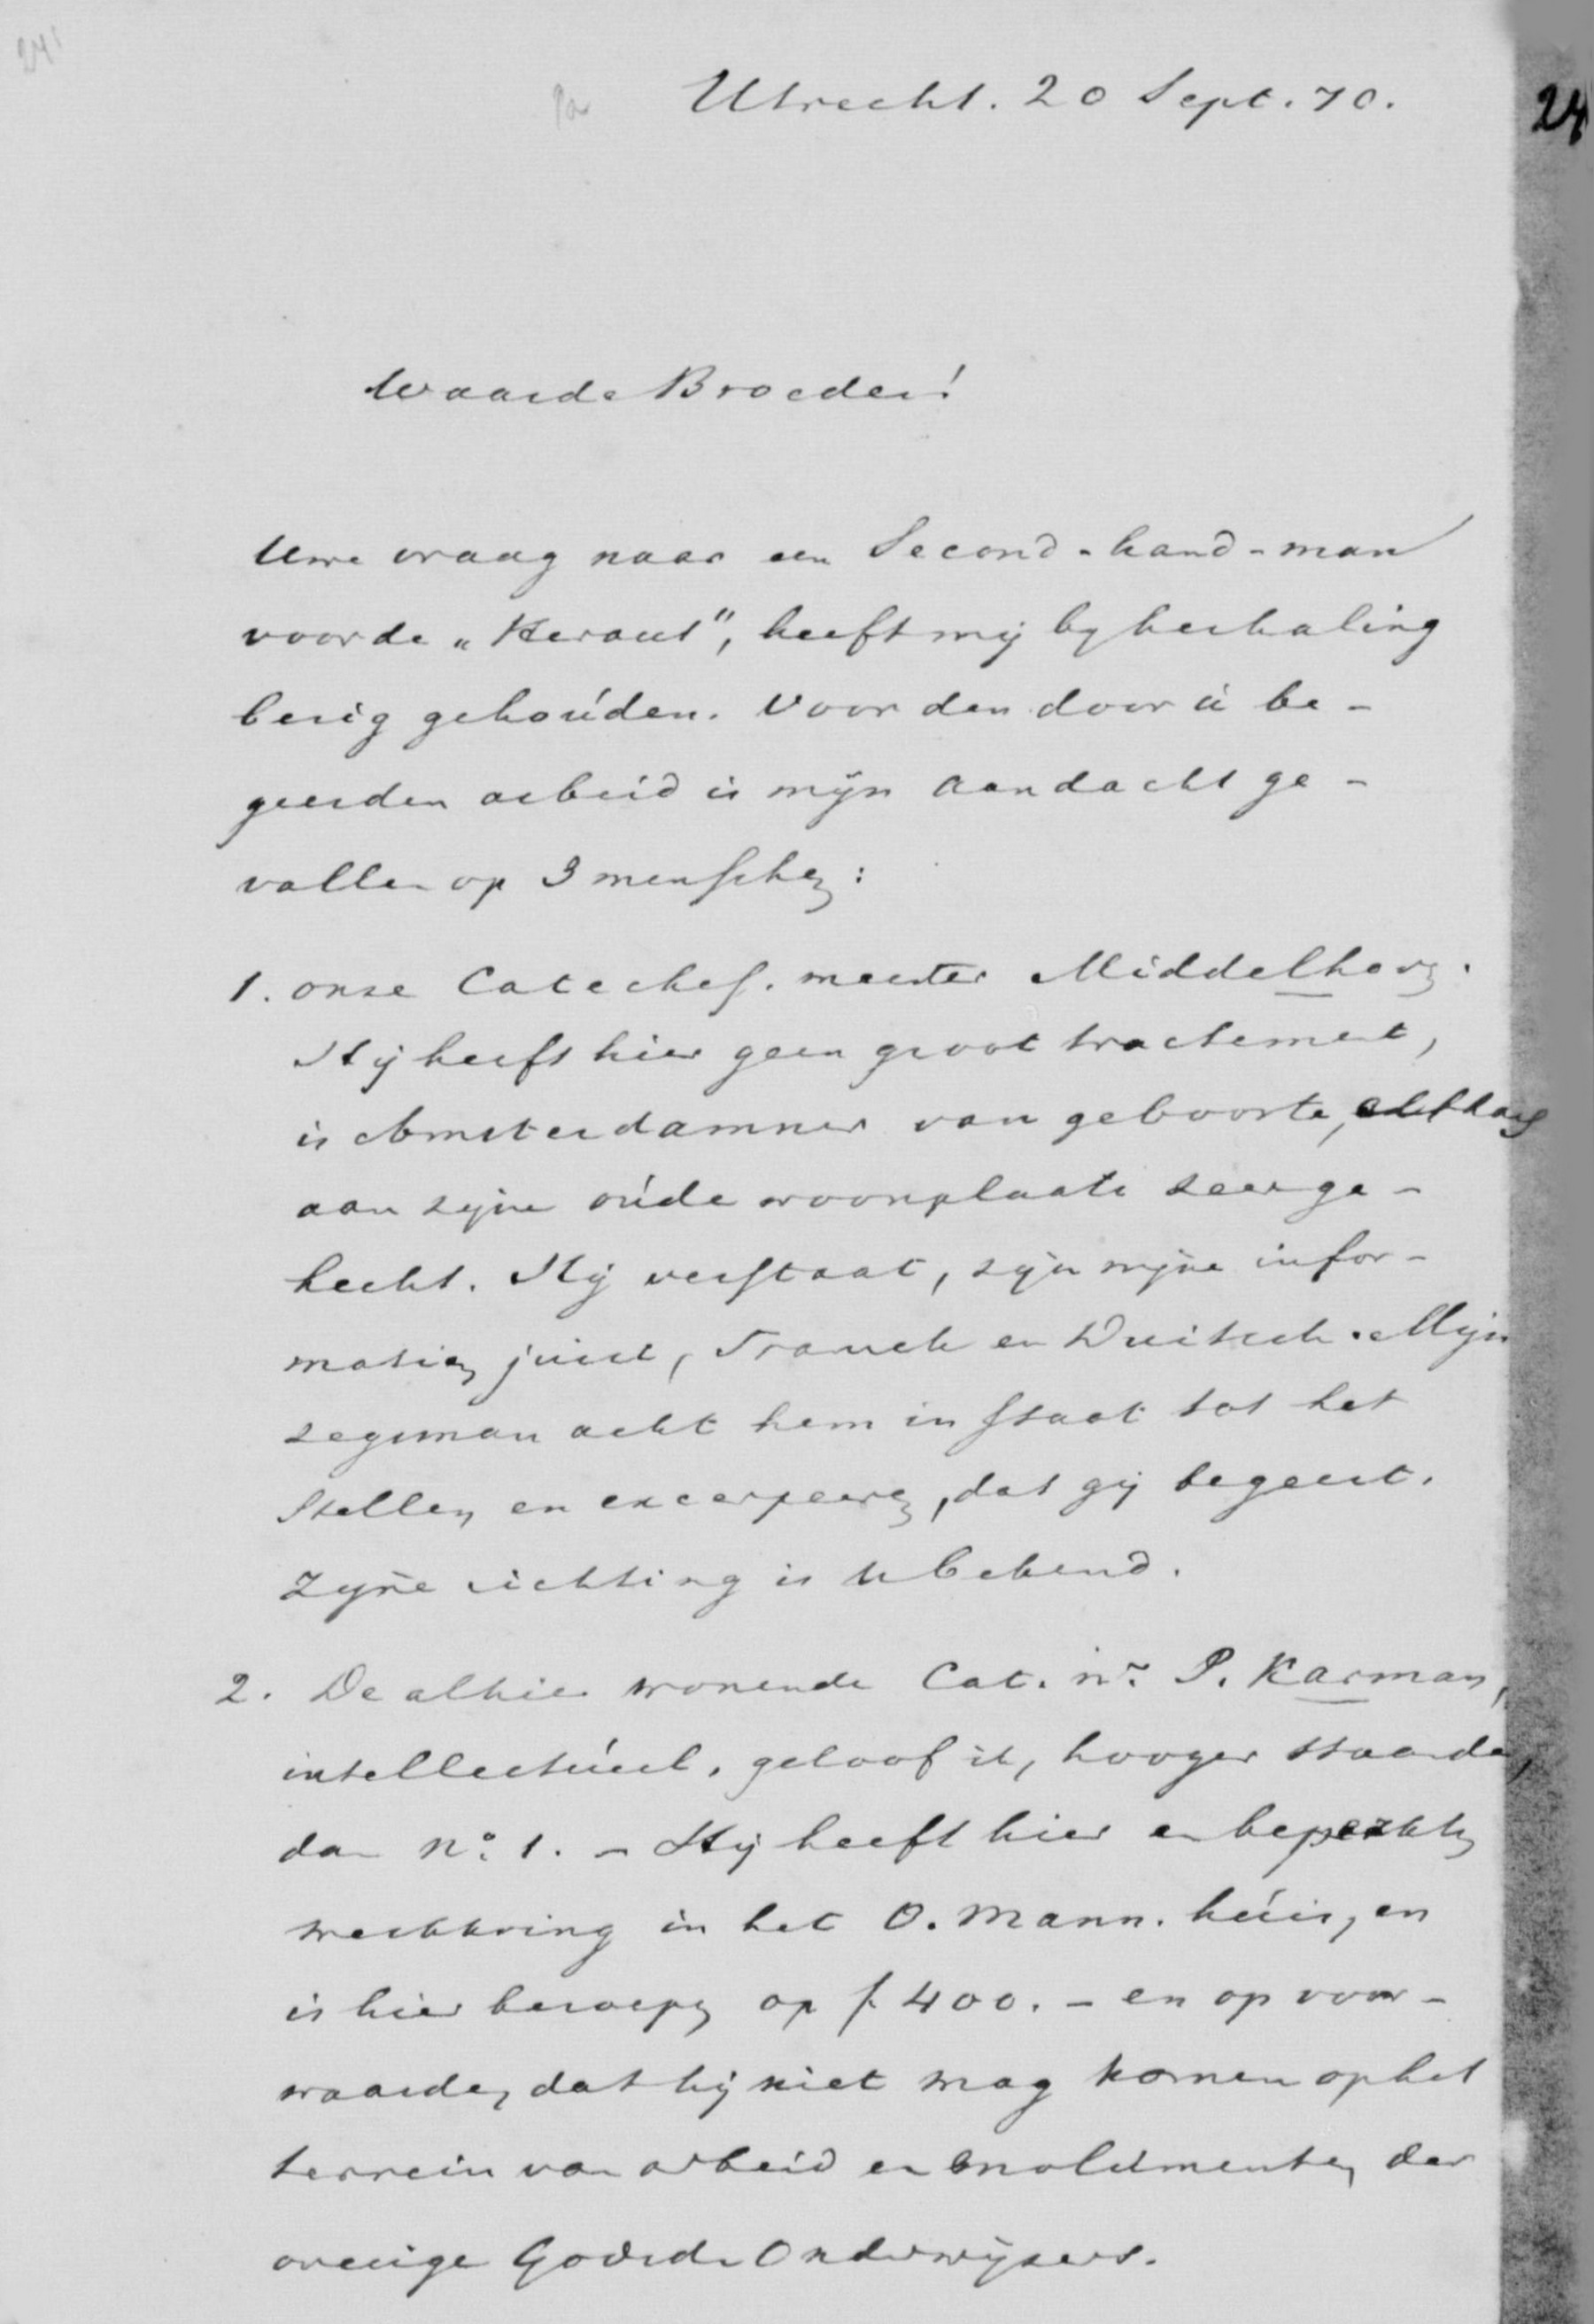 24
Utrecht. 20 Sept. 70.
24
Waarde Broeder!
Uwe vraag naar een Second-hand-man
voor de „Heraut", heeft mij by herhaling
bezig gehouden. Voor den door u be-
geerden arbeid is mijn aandacht ge-
vallen op 3 menschen:
1. onze Catechis. meester Middelhoven.
Hij heeft hier geen groot tractement,
is Amsterdammer van geboorte,
aan zijne oude woonplaats zeer ge-
hecht. Hij verstaat, zijn mijne infor-
matien juist, Fransch en Duitsch. Mijn
zegsman acht hem in staat tot het
stellen en excerpeeren, dat gij begeert.
Zijne richting is U bekend.
2. De alhier wonende Cat. mr. P. Karman,
intellectueel, geloof ik, hooger staande,
dan No. 1. - Hij heeft hier en beperkten
werkkring in het O. Mann. huis, en
is hier beroepen op f 400. - en op voor-
waarde, dat hij niet mag komen op het
terrein van arbeid en emolumenten der
overige Godsd. Onderwijzers.